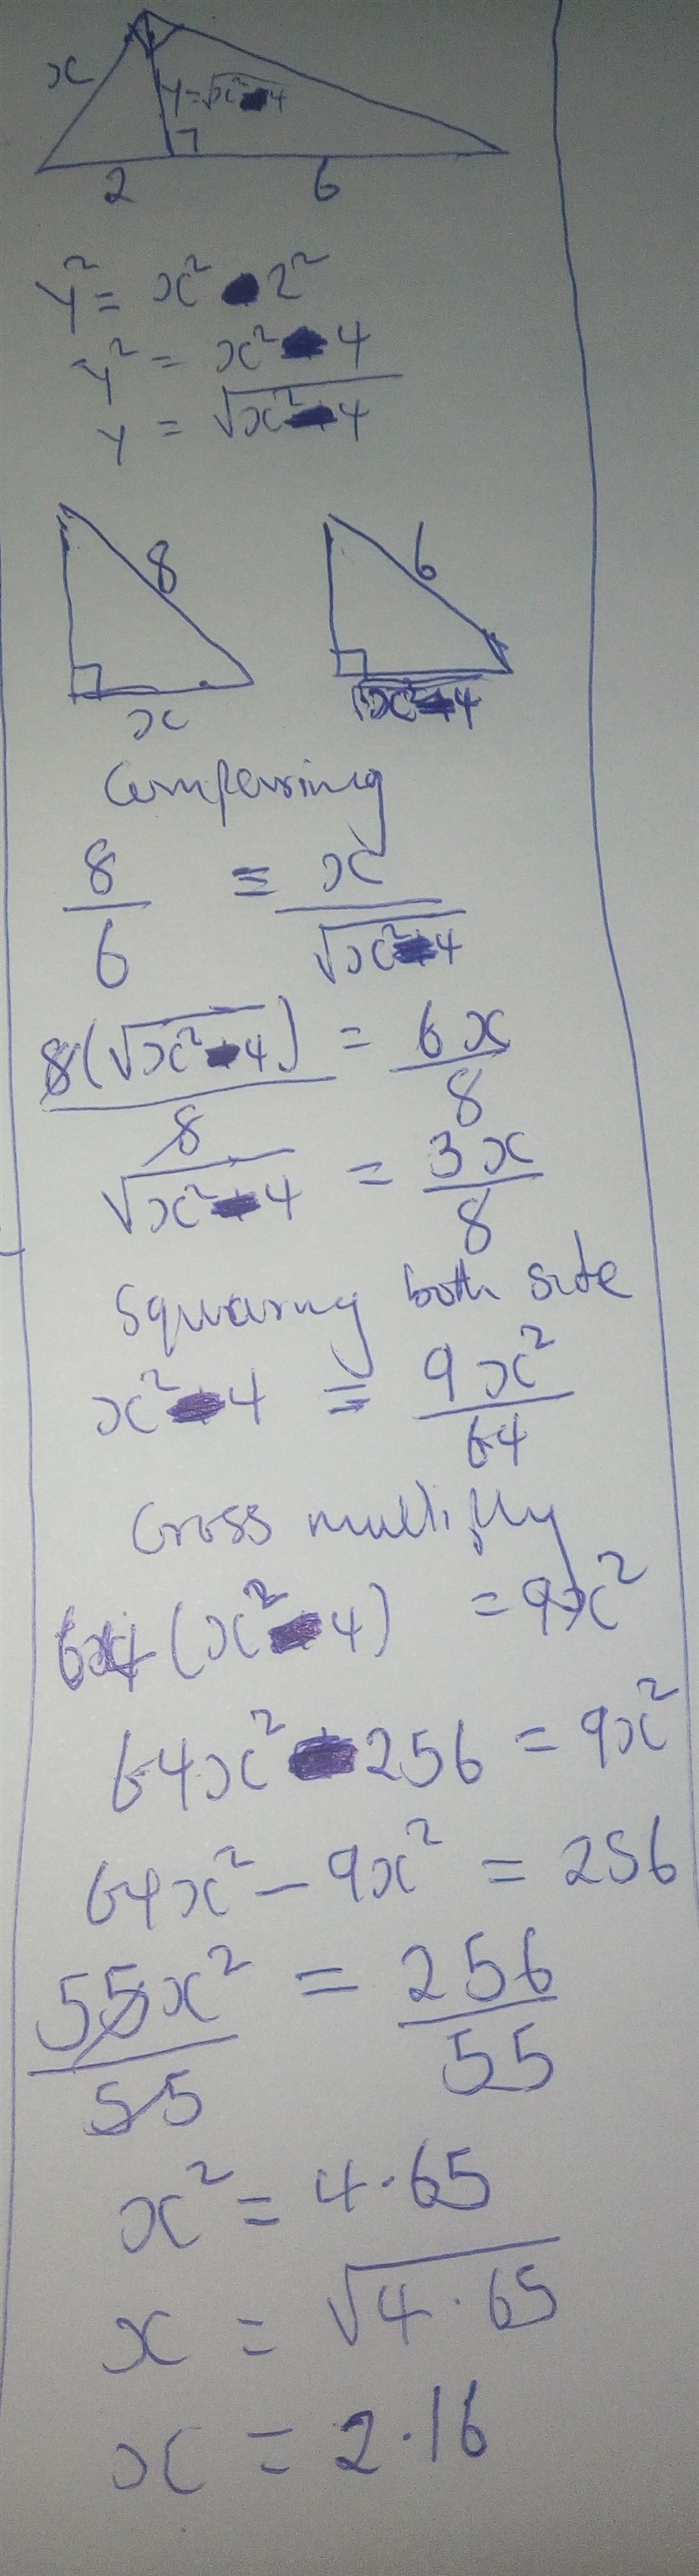 x
y=√x²-4
2 6
y² = x² - 2²
y² = x² - 4
y = √x²-4
8 6
x √x²-4
Comparing
8/6 = x/√x²-4
8(√x²-4)/8 = 6x/8
√x²-4 = 3x/8
Squaring both side
x²-4 = 9x²/64
Cross multiply
64(x²-4) = 9x²
64x² - 256 = 9x²
64x² - 9x² = 256
55x²/55 = 256/55
x² = 4.65
x = √4.65
x = 2.16